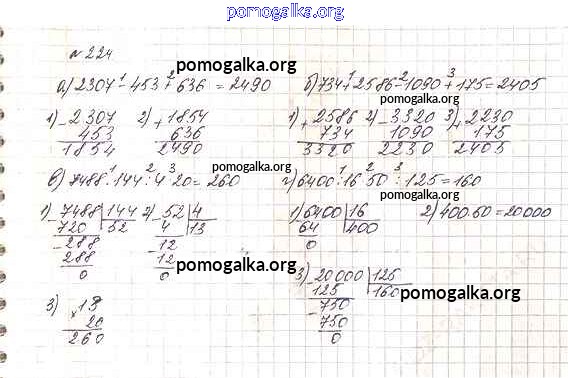 pomogalka.org
№ 224
pomogalka.org
а) 2307 - 453 + 636 = 2490
1 2
б) 734 + 2586 - 1090 + 175 = 2405
1 2 3
pomogalka.org
1) - 2307
453
1854
2) + 1854
636
2490
1) + 2586
734
3320
2) - 3320
1090
2230
3) + 2230
175
2405
pomogalka.org
в) 7488 : 144 : 4 · 20 = 260
1 2 3
г) 6400 : 16 · 50 : 125 = 160
1 2 3
pomogalka.org
1) - 7488 | 144
720 | 52
- 288
288
0
2) - 52 | 4
4 | 13
- 12
12
0
1) 6400 | 16
64 | 400
0
2) 400 · 50 = 20000
pomogalka.org
3) × 13
20
260
3) - 20000 | 125
125 | 160
- 750
750
0
pomogalka.org